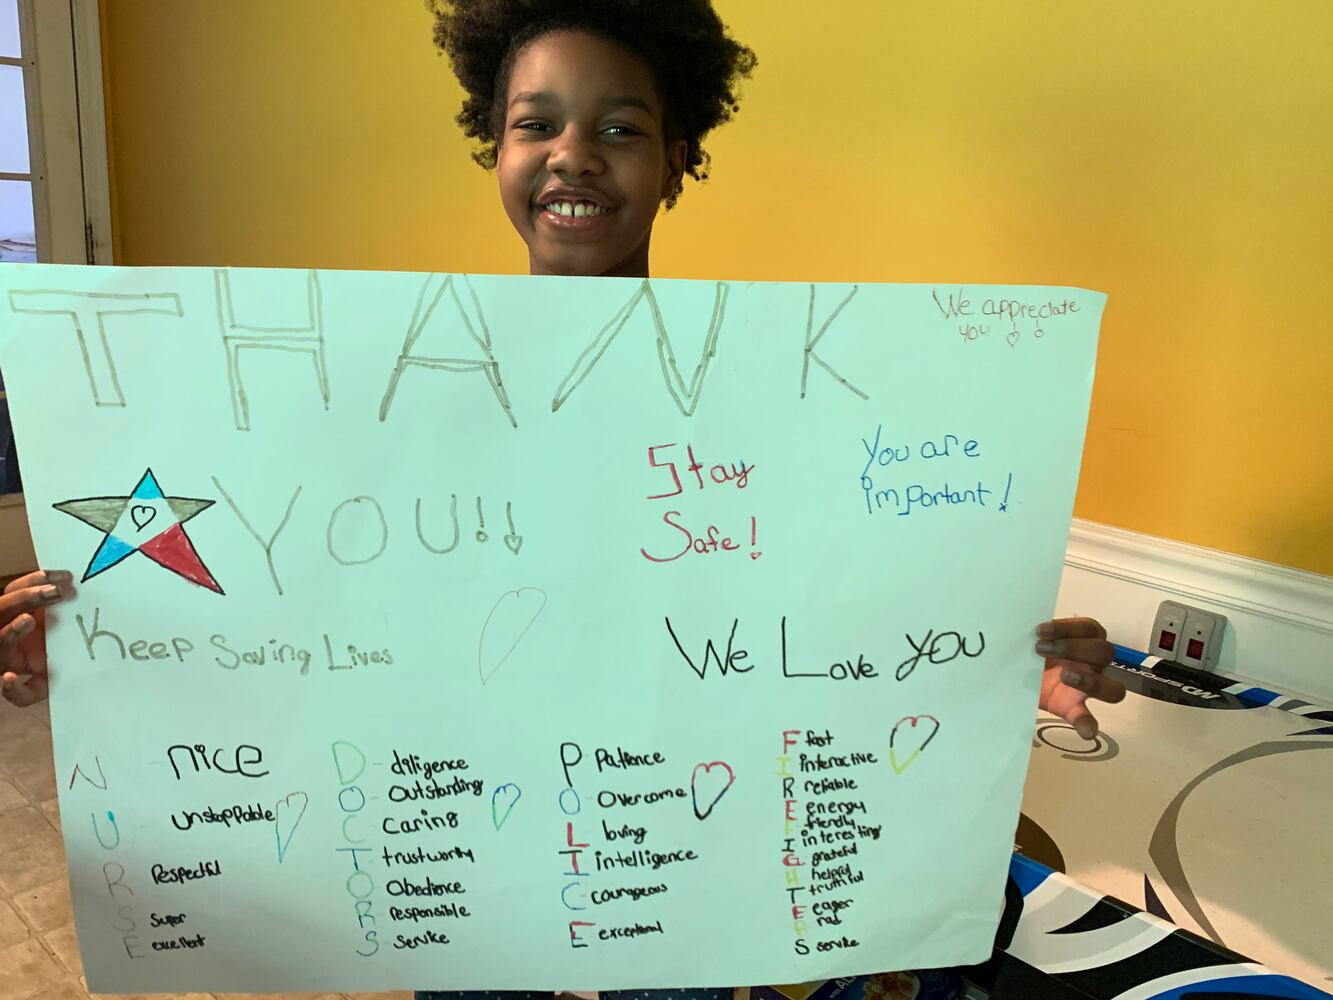 THANK
We appreciate
you !!
YOU!!
Stay
Safe!
You are
important!
Keep Saving Lives
We Love you
N nice
U unstoppable
R Respectful
S Super
E excellent
D - diligence
O - Outstanding
C Caring
T trustworthy
O Obedience
R responsible
S - Service
P Patience
O - Overcome
L loving
I intelligence
C courageous
E exceptional
F fast
I interactive
R reliable
E energy
F friendly
I interesting
G grateful
H helpful
T truthful
E eager
R rad
S service
MD SPORTS